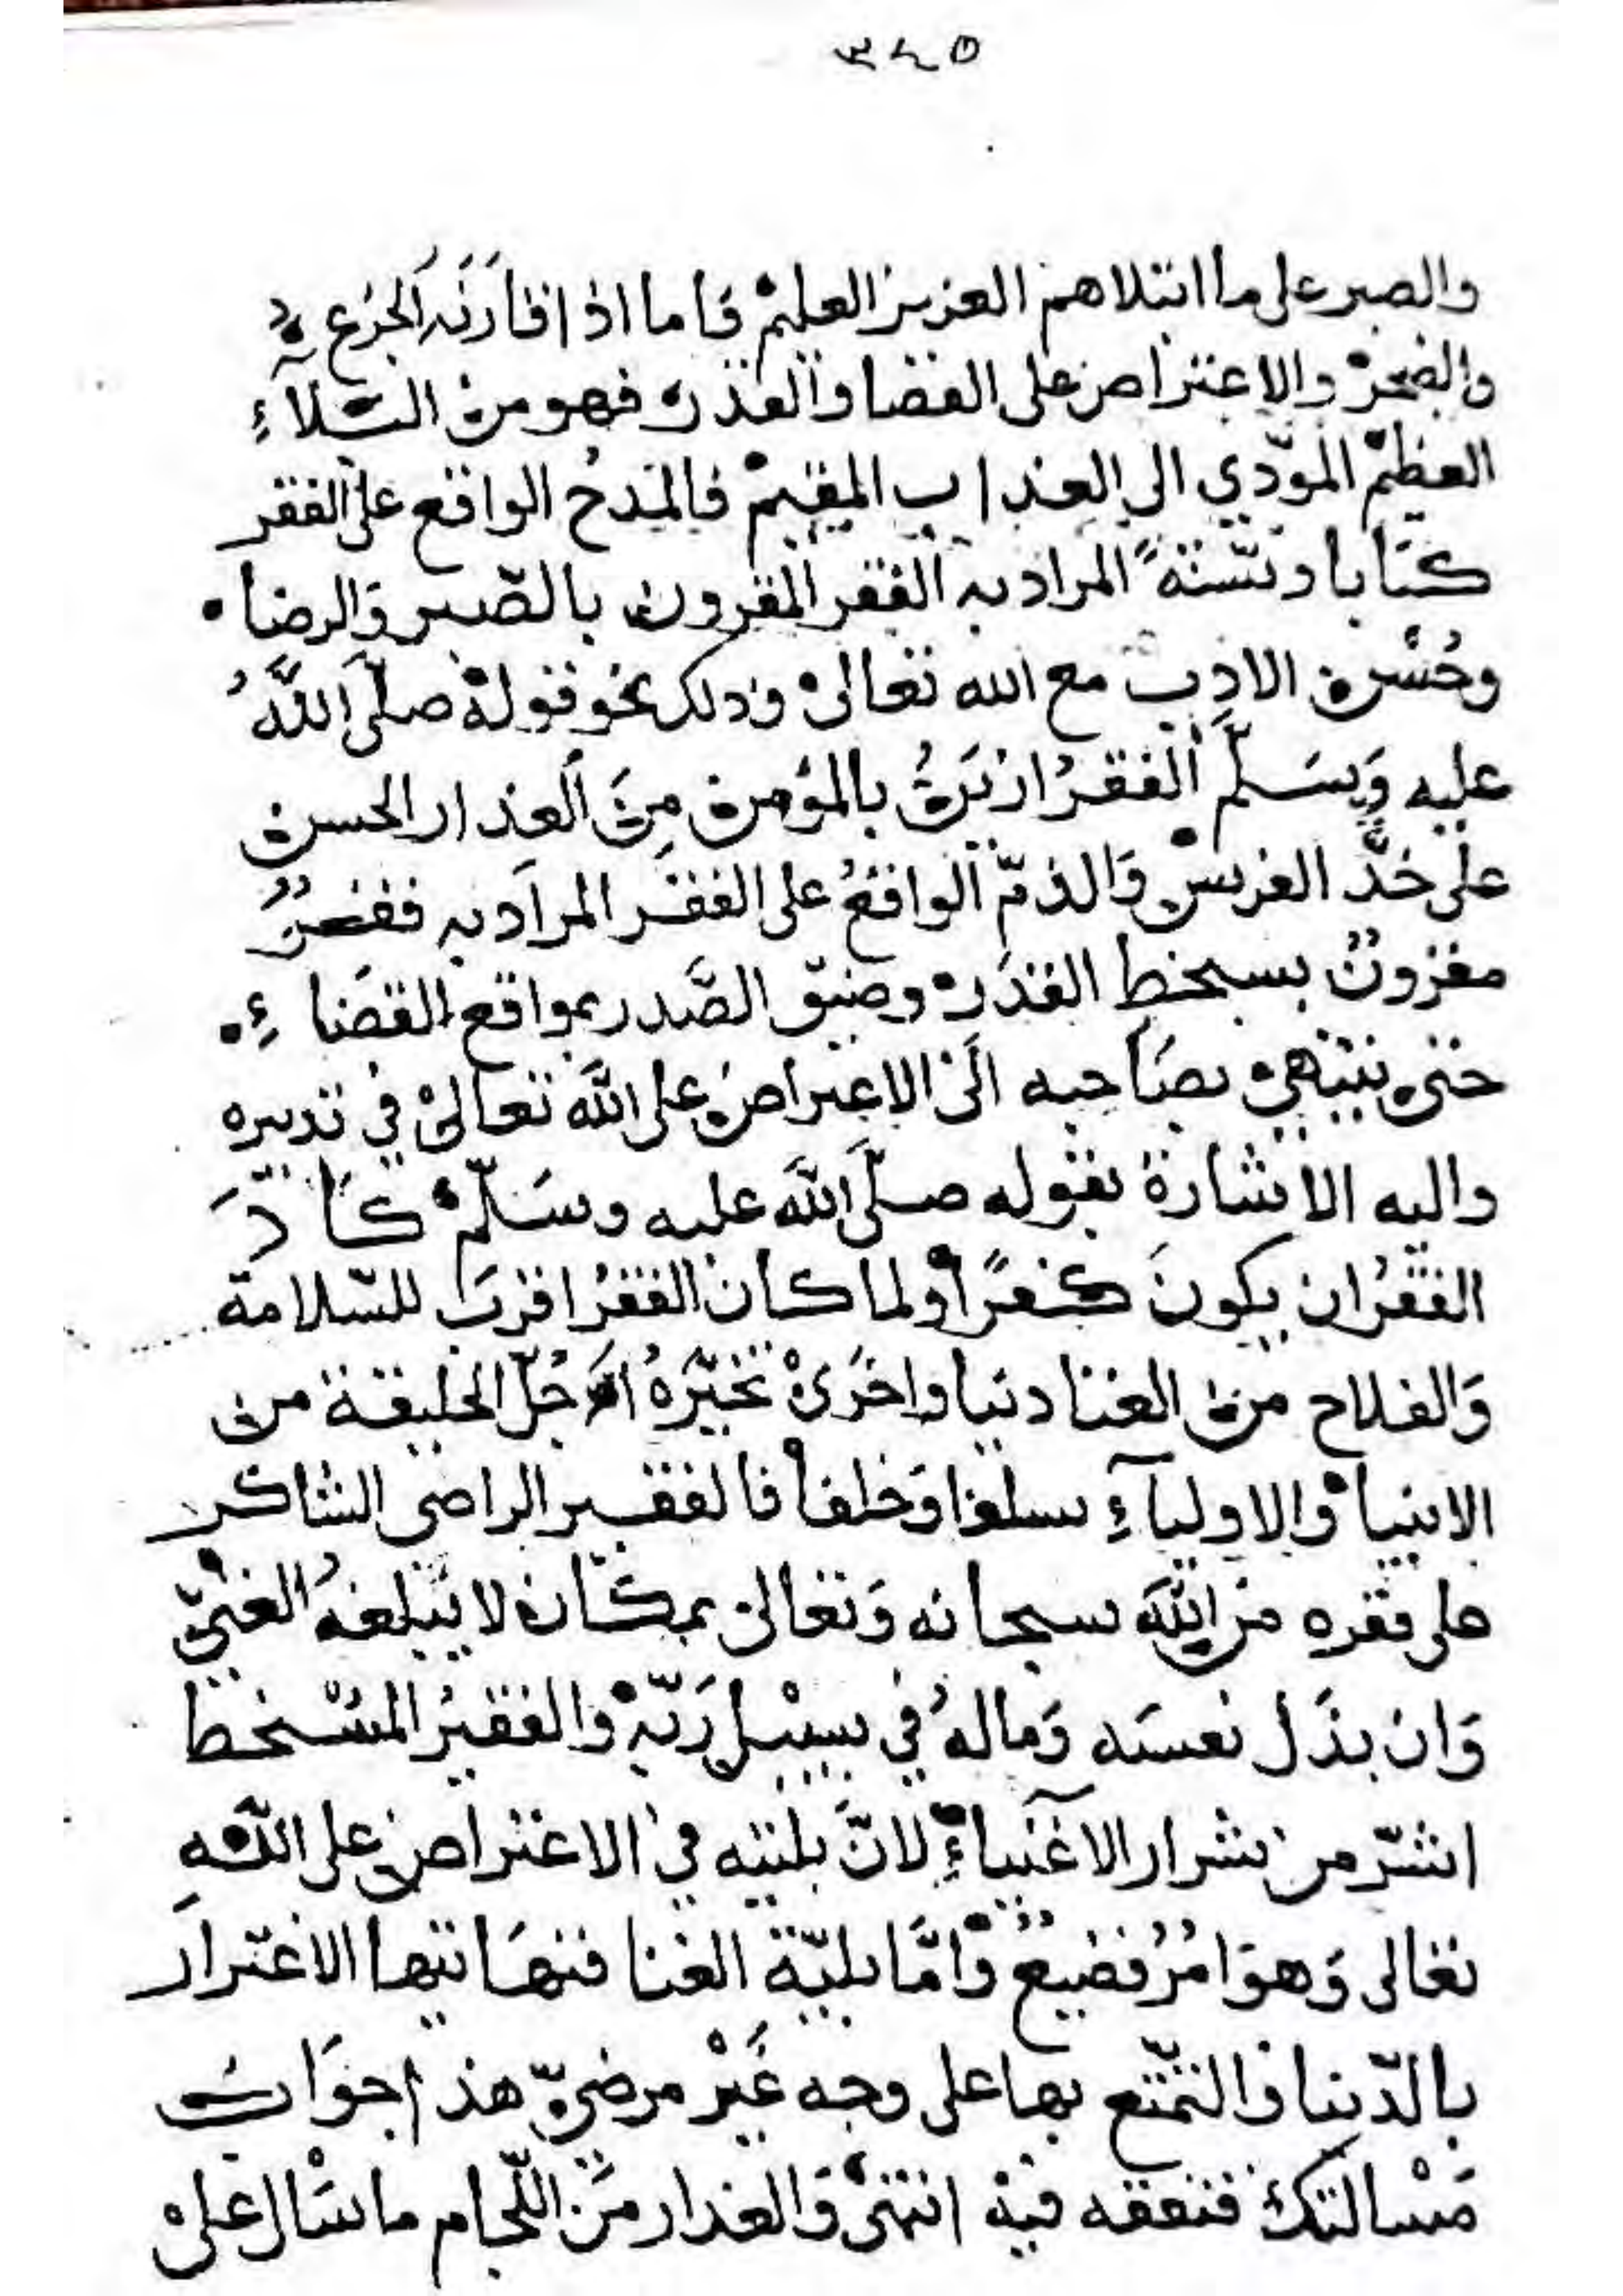 ٣٤٥
والصبر على ما ابتلاهم العزيز العليم فاما اذا قارنه الجزع
والضجر والاعتراض على القضا والقدر فهو من البلاء
العظيم المودي الى العذاب المقيم فالمدح الواقع على الفقر
كتابا وسنة المراد به الفقر المقرون بالصبر والرضا
وحسن الادب مع الله تعالى وذلك نحو قوله صلى الله
عليه وسلم الفقر ازين بالمؤمن من العذار الحسن
على خد الفرس والذم الواقع على الفقر المراد به فقر
مقرون بسخط القدر وضيق الصدر بمواقع القضاء
حتى ينتهي بصاحبه الى الاعتراض على الله تعالى في تدبيره
واليه الاشارة بقوله صلى الله عليه وسلم كاد
الفقر ان يكون كفرا ولما كان الفقر اقرب للسلامة
والفلاح من الغنا دنيا واخرى تخيره جل الخليقة من
الانبيا والاولياء سلفا وخلفا فالفقير الراضي الشاكر
على فقره من الله سبحانه وتعالى بمكان لا يبلغه الغني
وان بذل نفسه وماله في سبيل ربه والفقير المتسخط
اشر من شرار الاغنياء لان بليته في الاعتراض على الله
تعالى وهو امر فضيع واما بلية الغنا فنهايتها الاغترار
بالدنيا والتمتع بها على وجه غير مرضي هذا جواب
مسالتك فتفقه فيه انتهى والعذار من اللجام ما سال على